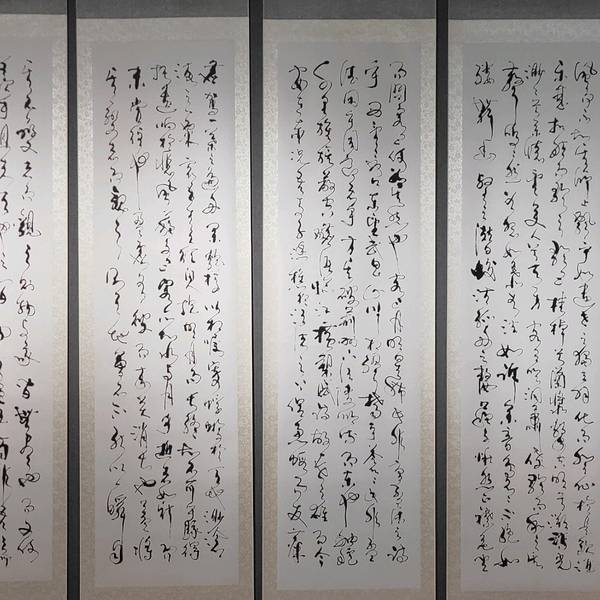 風而不知其所止飄飄乎如遺世獨立羽化而登仙於是飲酒
樂甚扣舷而歌之歌曰桂棹兮蘭槳擊空明兮溯流光
渺渺兮予懷望美人兮天一方客有吹洞簫者倚歌而和之其
聲嗚嗚然如怨如慕如泣如訴餘音嫋嫋不絕如
縷舞幽壑之潛蛟泣孤舟之嫠婦蘇子愀然正襟危坐
而問客曰何為其然也客曰月明星稀烏鵲南飛此非曹孟德之詩
乎西望夏口東望武昌山川相繆鬱乎蒼蒼此非孟
德之困於周郎者乎方其破荊州下江陵順流而東也舳艫
千里旌旗蔽空釃酒臨江橫槊賦詩固一世之雄也而今
安在哉況吾與子漁樵於江渚之上侶魚蝦而友麋
鹿駕一葉之扁舟舉匏樽以相屬寄蜉蝣於天地渺滄
海之一粟哀吾生之抱明月而長終知不可乎驟得
託遺響於悲風蘇子曰客亦知夫水與月乎逝者如斯而
未嘗往也盈虛者如彼而卒莫消長也蓋將
自其變者而觀之則天地曾不能以一瞬自
其不變者而觀之則物與我皆無盡也而又何